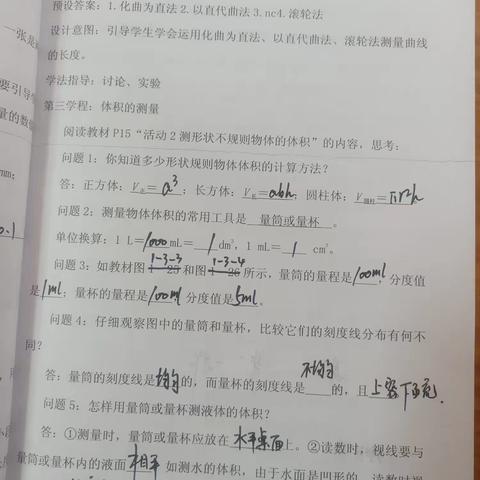 预设答案：1.化曲为直法 2.以直代曲法 3.nc4.滚轮法
设计意图：引导学生学会运用化曲为直法、以直代曲法、滚轮法测量曲线
一张是
的长度。
学法指导：讨论、实验
要引导学
第三学程：体积的测量
量的数值
阅读教材 P15“活动 2 测形状不规则物体的体积”的内容，思考：
问题 1：你知道多少形状规则物体体积的计算方法？
mm；
答：正方体：V正=a³；长方体：V长=abh；圆柱体：V圆柱=πr²h
问题 2：测量物体体积的常用工具是 量筒或量杯 。
0.1
单位换算：1 L=1000 mL= 1 dm³，1 mL= 1 cm³。
1-3-3 1-3-4
问题 3：如教材图 1-25 和图 1-26 所示，量筒的量程是100ml，分度值
是1ml；量杯的量程是100ml 分度值是5ml。
问题 4：仔细观察图中的量筒和量杯，比较它们的刻度线分布有何不
同？
答：量筒的刻度线是均匀的，而量杯的刻度线是不均匀的，且上密下疏.
问题 5：怎样用量筒或量杯测液体的体积？
答：①测量时，量筒或量杯应放在水平桌面上。②读数时，视线要与
量筒或量杯内的液面相平 如测水的体积，由于水面是凹形的，读数时